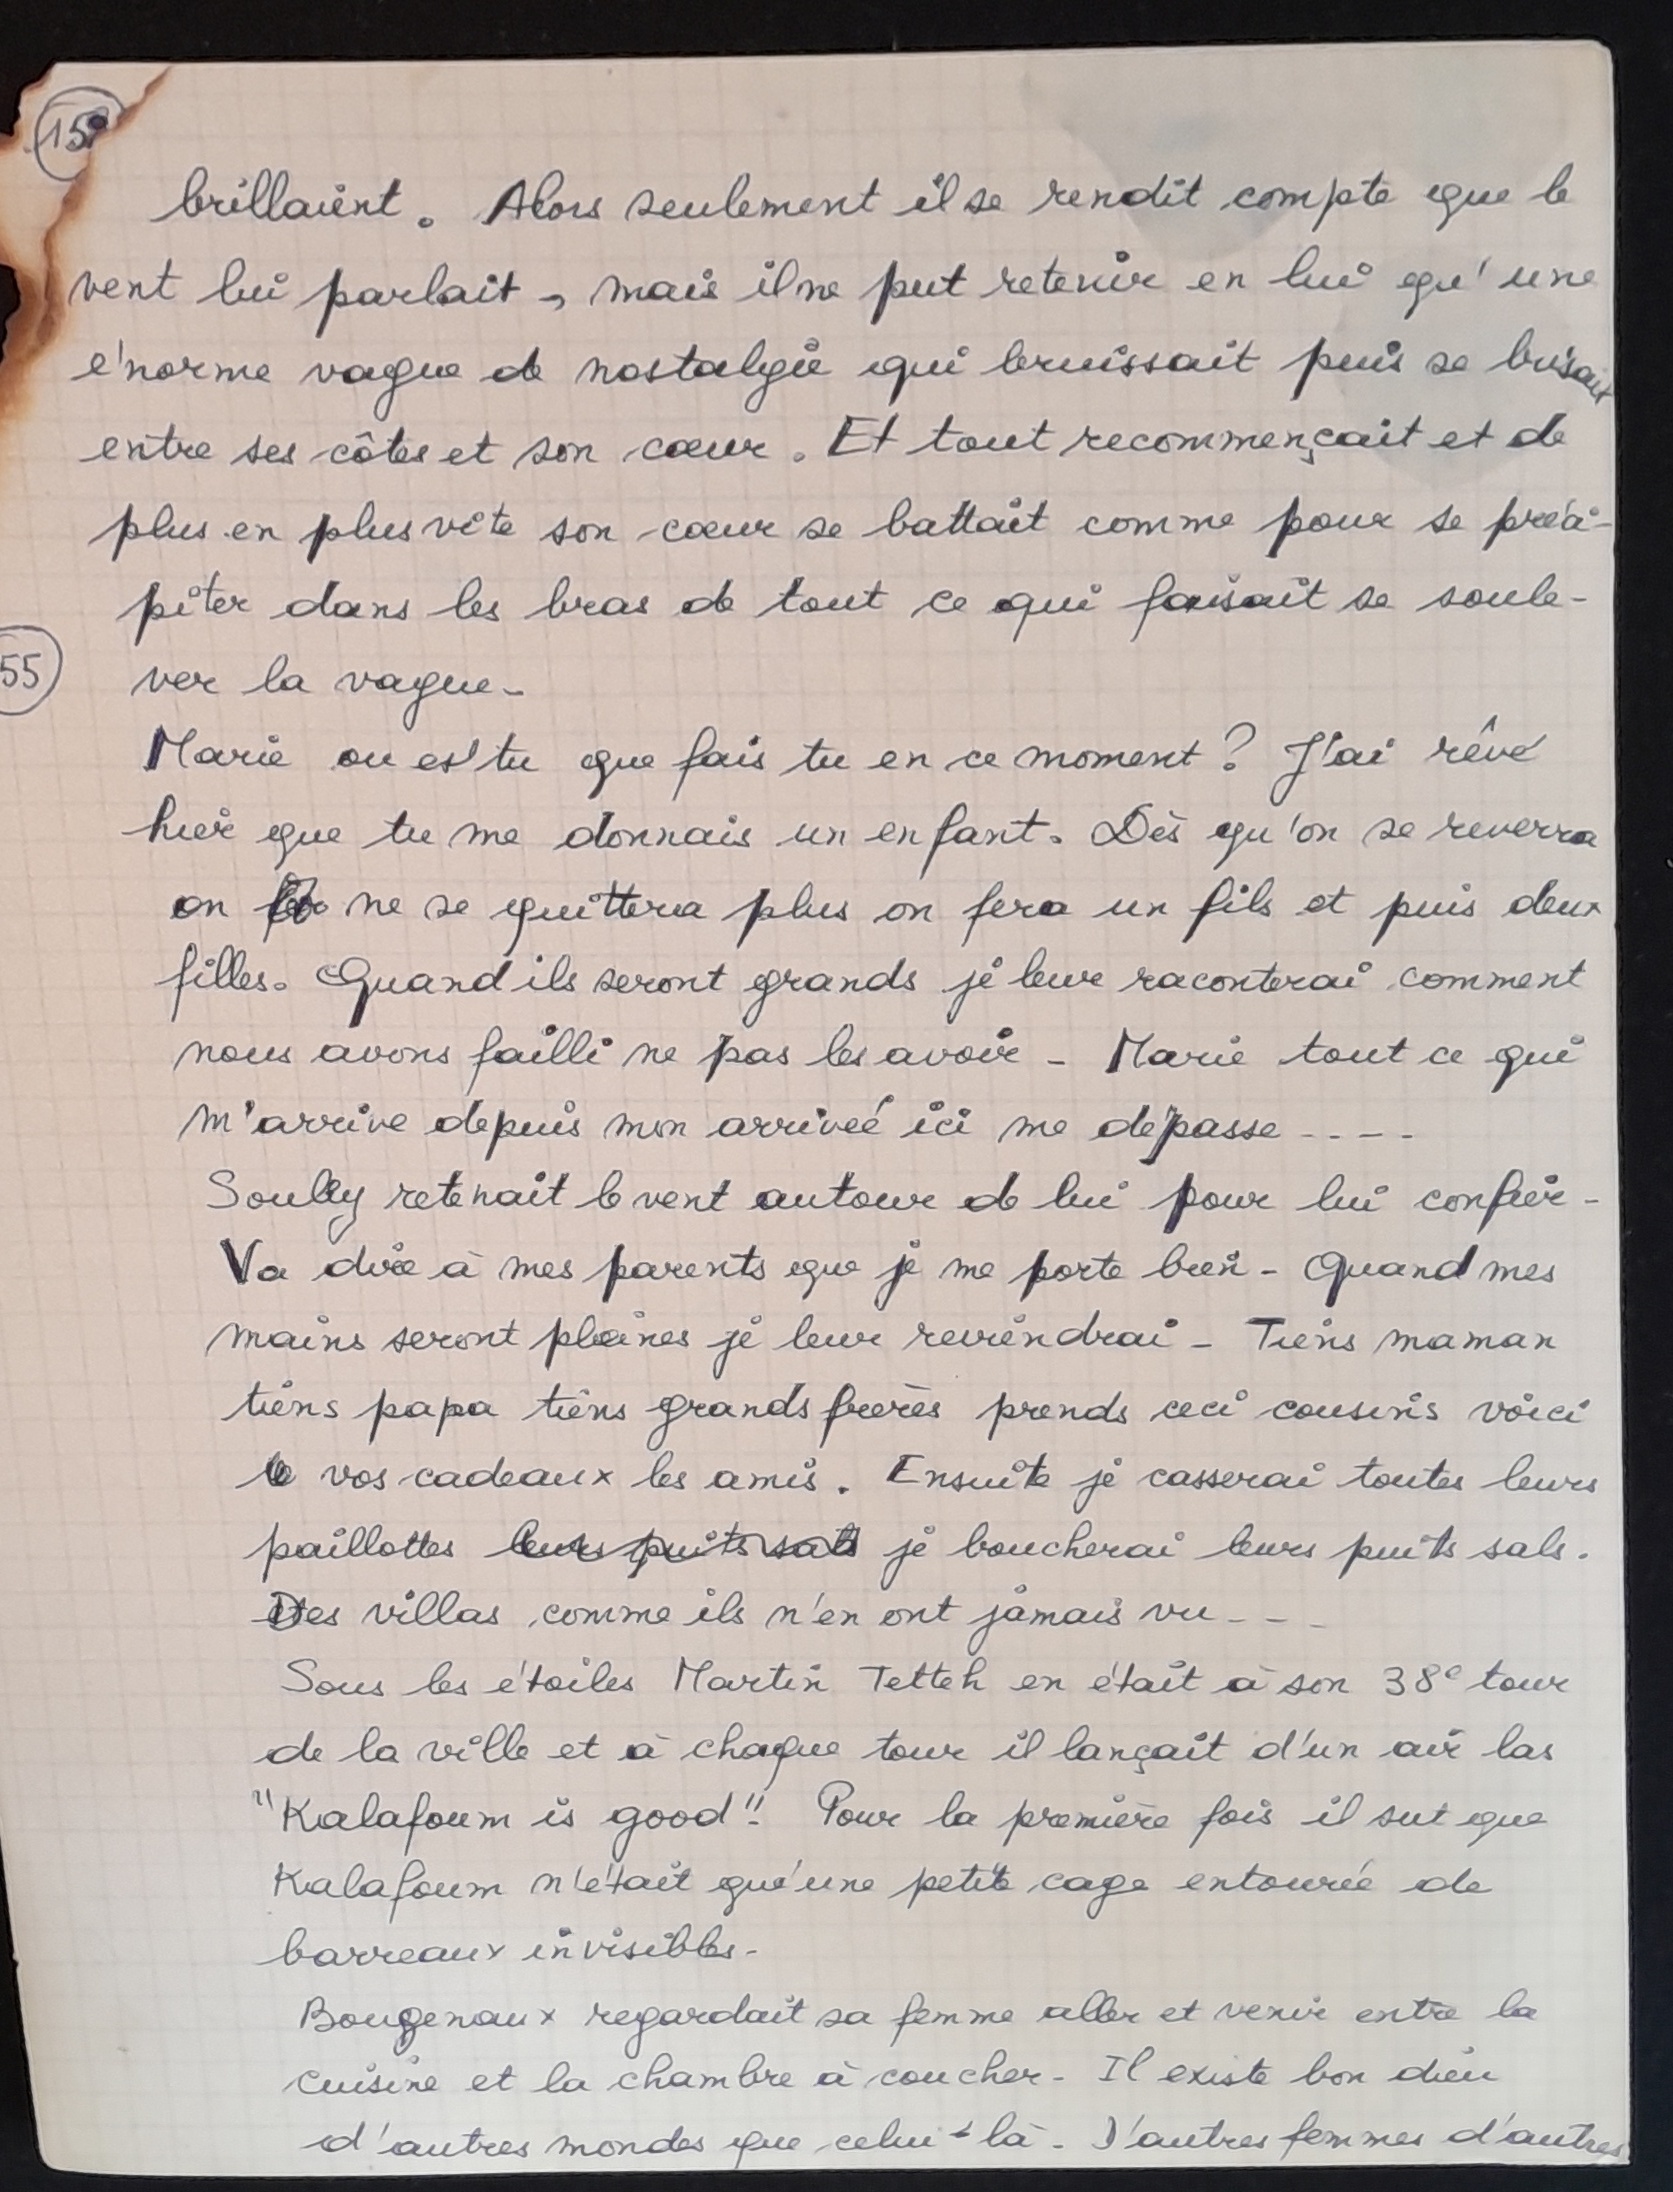 15
brillaient. Alors seulement il se rendit compte que le
vent lui parlait, mais il ne put retenir en lui qu'une
énorme vague de nostalgie qui bruissait puis se brisait
entre ses côtes et son cœur. Et tout recommençait et de
plus en plus vite son cœur se battait comme pour se préci-
piter dans les bras de tout ce qui faisait se soule-
55
ver la vague -
Marie ou es'tu que fais tu en ce moment ? J'ai rêvé
hier que tu me donnais un enfant. Dès qu'on se reverra
on ne se quittera plus on fera un fils et puis deux
filles. Quand ils seront grands je leur raconterai comment
nous avons failli ne pas les avoir - Marie tout ce qui
m'arrive depuis mon arrivée ici me dépasse ----
Soully retenait le vent autour de lui pour lui confier -
Va dire à mes parents que je me porte bien - Quand mes
mains seront pleines je leur reviendrai - Tiens maman
tiens papa tiens grands frères prends ceci cousins voici
vos cadeaux les amis. Ensuite je casserai toutes leurs
paillottes leurs puits sals je boucherai leurs puits sals.
Des villas comme ils n'en ont jamais vu ---
Sous les étoiles Martin Tetteh en était à son 38e tour
de la ville et à chaque tour il lançait d'un air las
"Kalafoum is good". Pour la première fois il sut que
Kalafoum n'était qu'une petite cage entourée de
barreaux invisibles -
Bougenaux regardait sa femme aller et venir entre la
cuisine et la chambre à coucher - Il existe bon dieu
d'autres mondes que celui-là - D'autres femmes d'autres